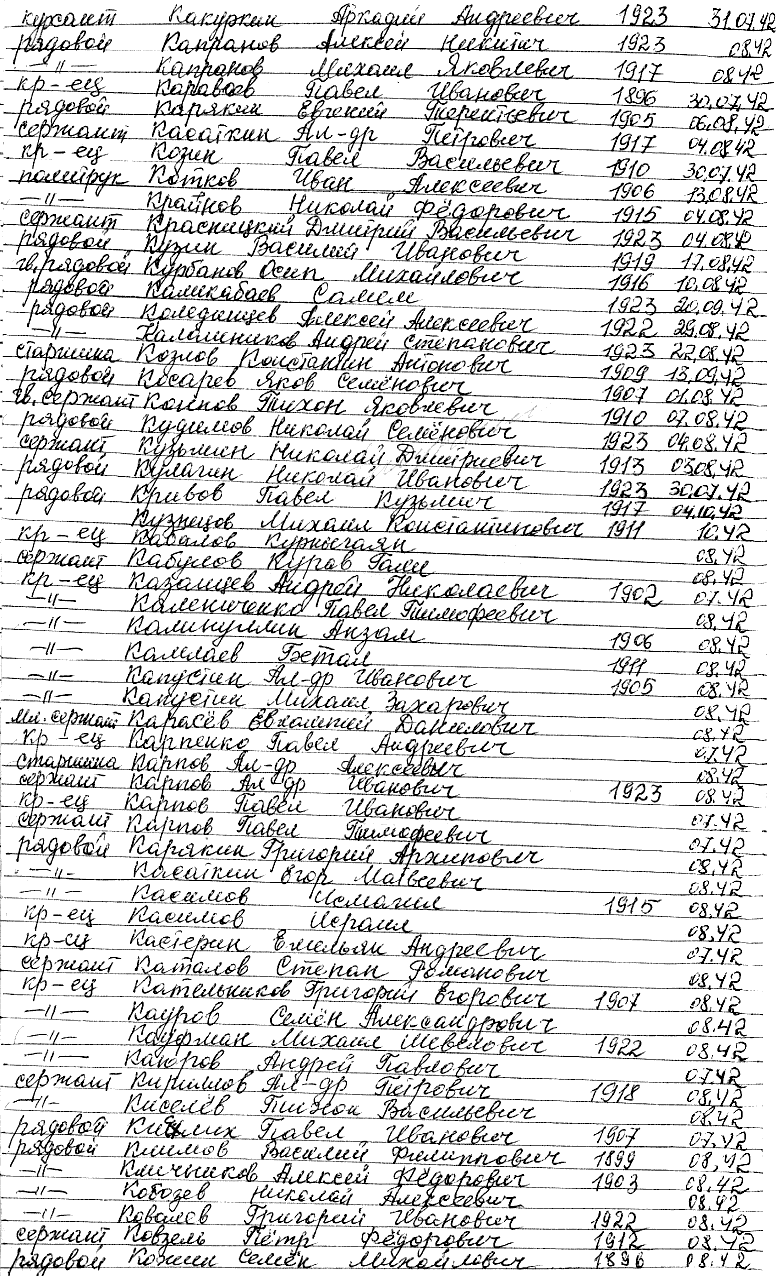 курсант Какуркин Аркадий Андреевич 1923 31.07.42
рядовой Капранов Алексей Никитич 1923 08.42
—"— Капранов Михаил Яковлевич 1917 08.42
кр-ец Караваев Павел Иванович 1896 30.07.42
рядовой Карякин Евгений Терентьевич 1905 06.08.42
сержант Касаткин Ал-др Петрович 1917 04.08.42
кр-ец Козин Павел Васильевич 1910 30.07.42
политрук Котков Иван Алексеевич 1906 13.08.42
—"— Крайнов Николай Фёдорович 1915 04.08.42
сержант Красницкий Дмитрий Васильевич 1923 04.08.42
рядовой Кузин Василий Иванович 1919 17.08.42
гв. рядовой Курбанов Осип Михайлович 1916 10.08.42
рядовой Каликабаев Салим 1923 20.09.42
рядовой Коледенцев Алексей Алексеевич 1922 29.08.42
—"— Калашников Андрей Степанович 1923 22.08.42
старшина Козлов Константин Антонович 1909 13.09.42
рядовой Косарев Яков Семёнович 1907 01.08.42
гв. сержант Тихон Яковлевич 1910 07.08.42
рядовой Кудимов Николай Семёнович 1923 04.08.42
сержант Кузьмин Николай Дмитриевич 1913 03.08.42
рядовой Кулагин Николай Иванович 1923 30.07.42
рядовой Кривов Павел Кузьмич 1917 04.10.42
Кузнецов Михаил Константинович 1911 10.42
кр-ец Кабалов 08.42
сержант Кабулов Куров Гали 08.42
кр-ец Казанцев Андрей Николаевич 1902 07.42
—"— Калениченко Павел Тимофеевич 08.42
—"— Калинуллин Анзам 1906 08.42
—"— Камлаев Бетал 1911 08.42
—"— Капустин Ал-др Иванович 1905 08.42
—"— Капустин Михаил Захарович 08.42
мл. сержант Карасёв Евлампий Данилович 08.42
кр-ец Карпенко Павел Андреевич 07.42
старшина Карпов Ал-др Алексеевич 08.42
сержант Карпов Ал-др Иванович 1923 08.42
кр-ец Карпов Павел Иванович 07.42
сержант Карпов Павел Тимофеевич 07.42
рядовой Карякин Григорий Архипович 08.42
—"— Касаткин Егор Матвеевич 08.42
—"— Касимов Исмагил 1915 08.42
кр-ец Касимов Исраил 08.42
кр-ец Кастерин Емельян Андреевич 07.42
сержант Каталов Степан Романович 08.42
кр-ец Кательников Григорий Егорович 1907 08.42
—"— Кауров Семён Александрович 08.42
—"— Кауфман Михаил Шевелович 1922 08.42
—"— Андрей Павлович 07.42
сержант Кириллов Ал-др Петрович 1918 08.42
—"— Киселёв Тихон Васильевич 08.42
рядовой Павел Иванович 1907 07.42
рядовой Климов Василий Филиппович 1899 08.42
—"— Ключников Алексей Фёдорович 1903 08.42
—"— Кободев Николай Алексеевич 08.42
—"— Ковалев Григорий Иванович 1922 08.42
сержант Ковзель Пётр Фёдорович 1912 08.42
рядовой Кожин Семён Михайлович 1896 08.42